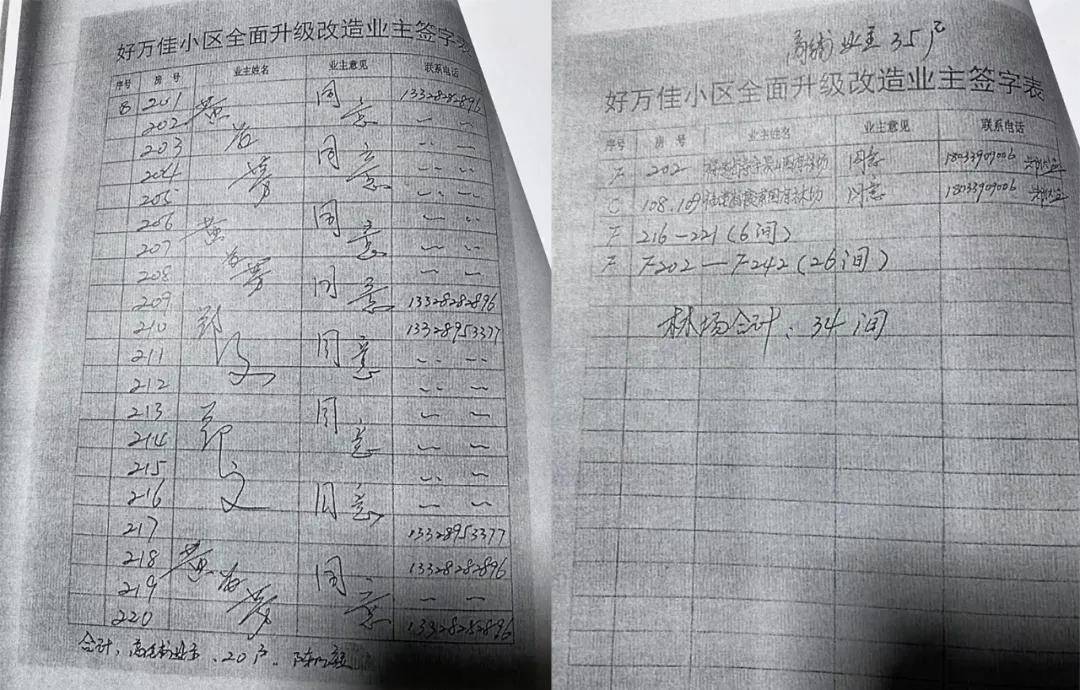 好万佳小区全面升级改造业主签字表
序号 房号 业主姓名 业主意见 联系电话
B 201 黄 同意 13328282896
202
203 同意
204
205
206 同意
207 黄
208
209 同意 13328282896
210 郭文 13328953377
211 同意
212
213 郭文 同意
214
215
216 同意
217 13328953377
218 黄 同意 13328282896
219
220 13328282896
合计,商铺业主,20户
商铺业主35户
好万佳小区全面升级改造业主签字表
序号 房号 业主姓名 业主意见 联系电话
F 202 同意 18033909006
C 108.109 福建省霞浦国有林场 同意 18033909006
F 216-221(6间)
F F202—F242(26间)
林场合计:34间